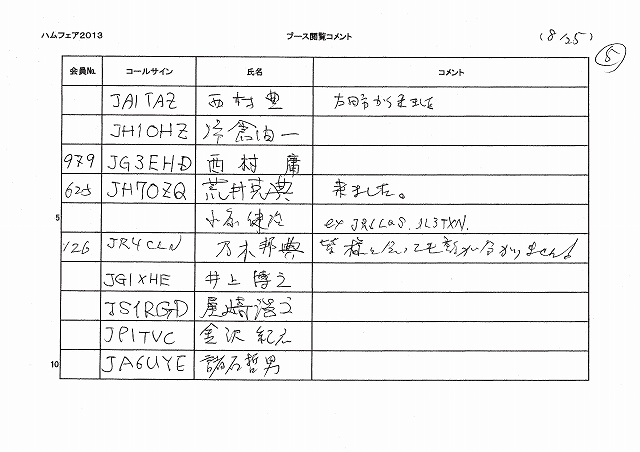 ハムフェア2013 ブース閲覧コメント (8/25) ⑤
会員No. コールサイン 氏名 コメント
JA1TAZ 西村 豊 太田市から来ました
JH1OHZ 冷倉由一
979 JG3EHD 西村 庸
625 JH7OZQ 荒井克典 来ました。
5 小原健治 ex JR6LQS, JL3TXN.
126 JR4CLN 乃木邦典 皆様と会っても顔が分かりません!
JG1XHE 井上博之
JS1RGD 尾崎浩之
JP1TVC 金沢紀元
10 JA6UYE 諸石哲男